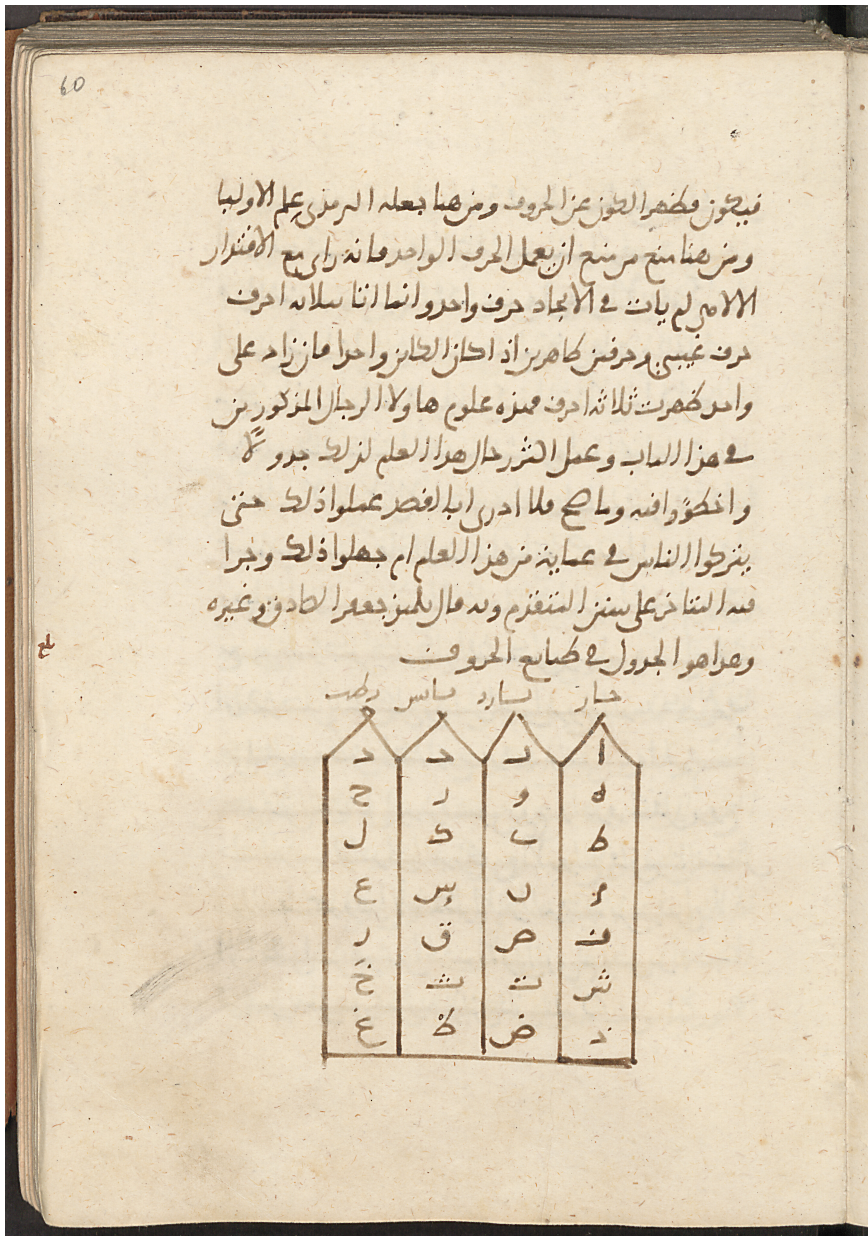 60
فيكون فظهر الكون عن الحروف ومن هنا جعله الترمذي علم الاوليا
ومن هنا منع من منع ان يعمل الحرف الواحد فانه راى مع الاقتدار
الالاهي لم يات في الايجاد حرف واحد وانما اتا بثلاثه احرف
حرف غيبي وحرفين ظاهرين اذا كان الكاين واحدا فان زاد على
واحد ظهرت ثلاثه احرف فهذه علوم هاولا الرجال المذكورين
في هذا الباب وعمل اكثر رجال هذا العلم لذلك جدولا
واخطؤوا فيه وما صح فلا ادري ابالقصد عملوا ذلك حتى
يتركوا الناس في عماية من هذا العلم ام جهلوا ذلك وجرا
فيه المتاخر على سنن المتقدم وبه قال تلميذ جعفر الصادق وغيره
وهذا هو الجدول في طبايع الحروف
حار بارد يابس رطب
ا ب ج د
ه و ز ح
ط ي ك ل
م ن س ع
ف ص ق ر
ش ت ث خ
ذ ض ظ غ